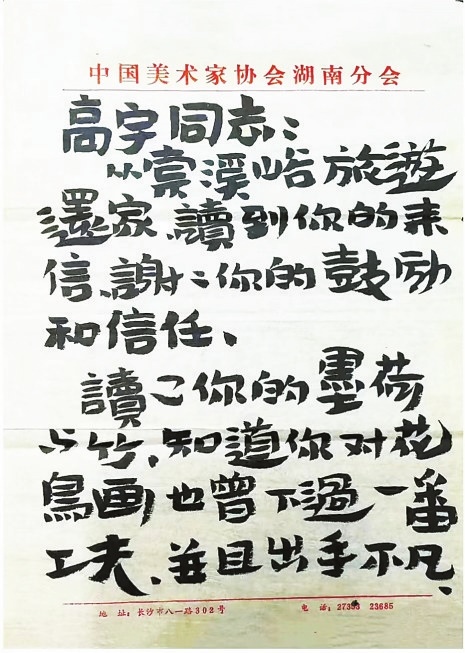 中国美术家协会湖南分会
高宇同志：
从索溪峪旅遊
還家、讀到你的来
信、謝〻你的鼓励
和信任、
讀了你的墨荷
与竹、知道你对花
鳥画也曾下過一番
工夫、並且出手不凡、
地 址：长沙市八一路302号 电 话：23685